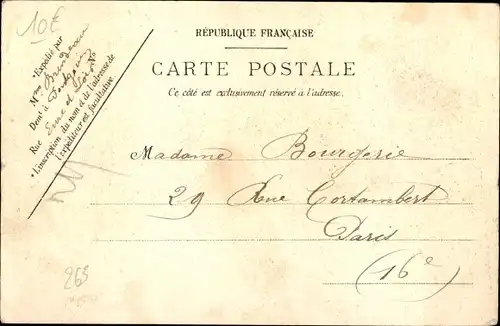 10€
RÉPUBLIQUE FRANÇAISE
CARTE POSTALE
Ce côté est exclusivement réservé à l'adresse.
*Expédié par
Mme
Demt à
Rue Eure et Loir No
*L'inscription du nom et de l'adresse de
l'expéditeur est facultative.
Madame Bourgerie
29 Rue Cortambert
Paris
(16e)
265